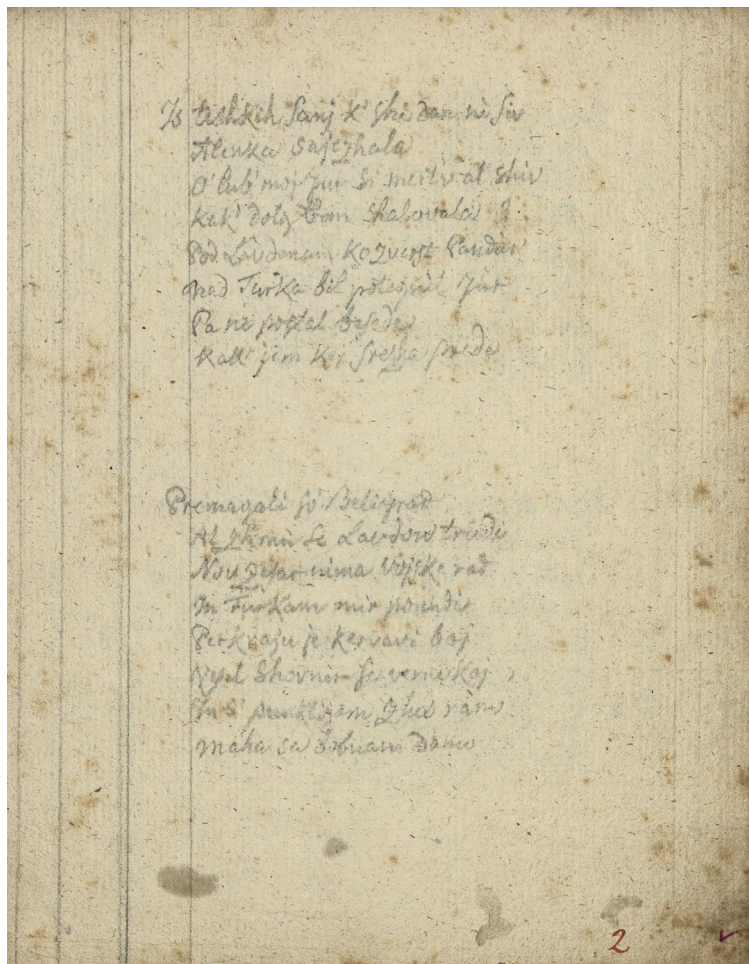 Is teshkih sanj k' shi dan ni siv
Alenka sajezhala
O lub' moj Jur si mertv al shiv
kak' dolg bom shalovala
Pod Lavdonam Pandur
nad Turka bil potegnil Jur
Pa ne poslal besede
Kak' jim kej srezha prede
Premagali so Beligrad
Al k'mu se Lavdon trudi
Nov Zesar nima vojske rad
In Turkam mir ponudi
Per kraju je kervavi boj
Shovnir se verne koj
In s' zhes ramo
maha sa bobnam damo
2